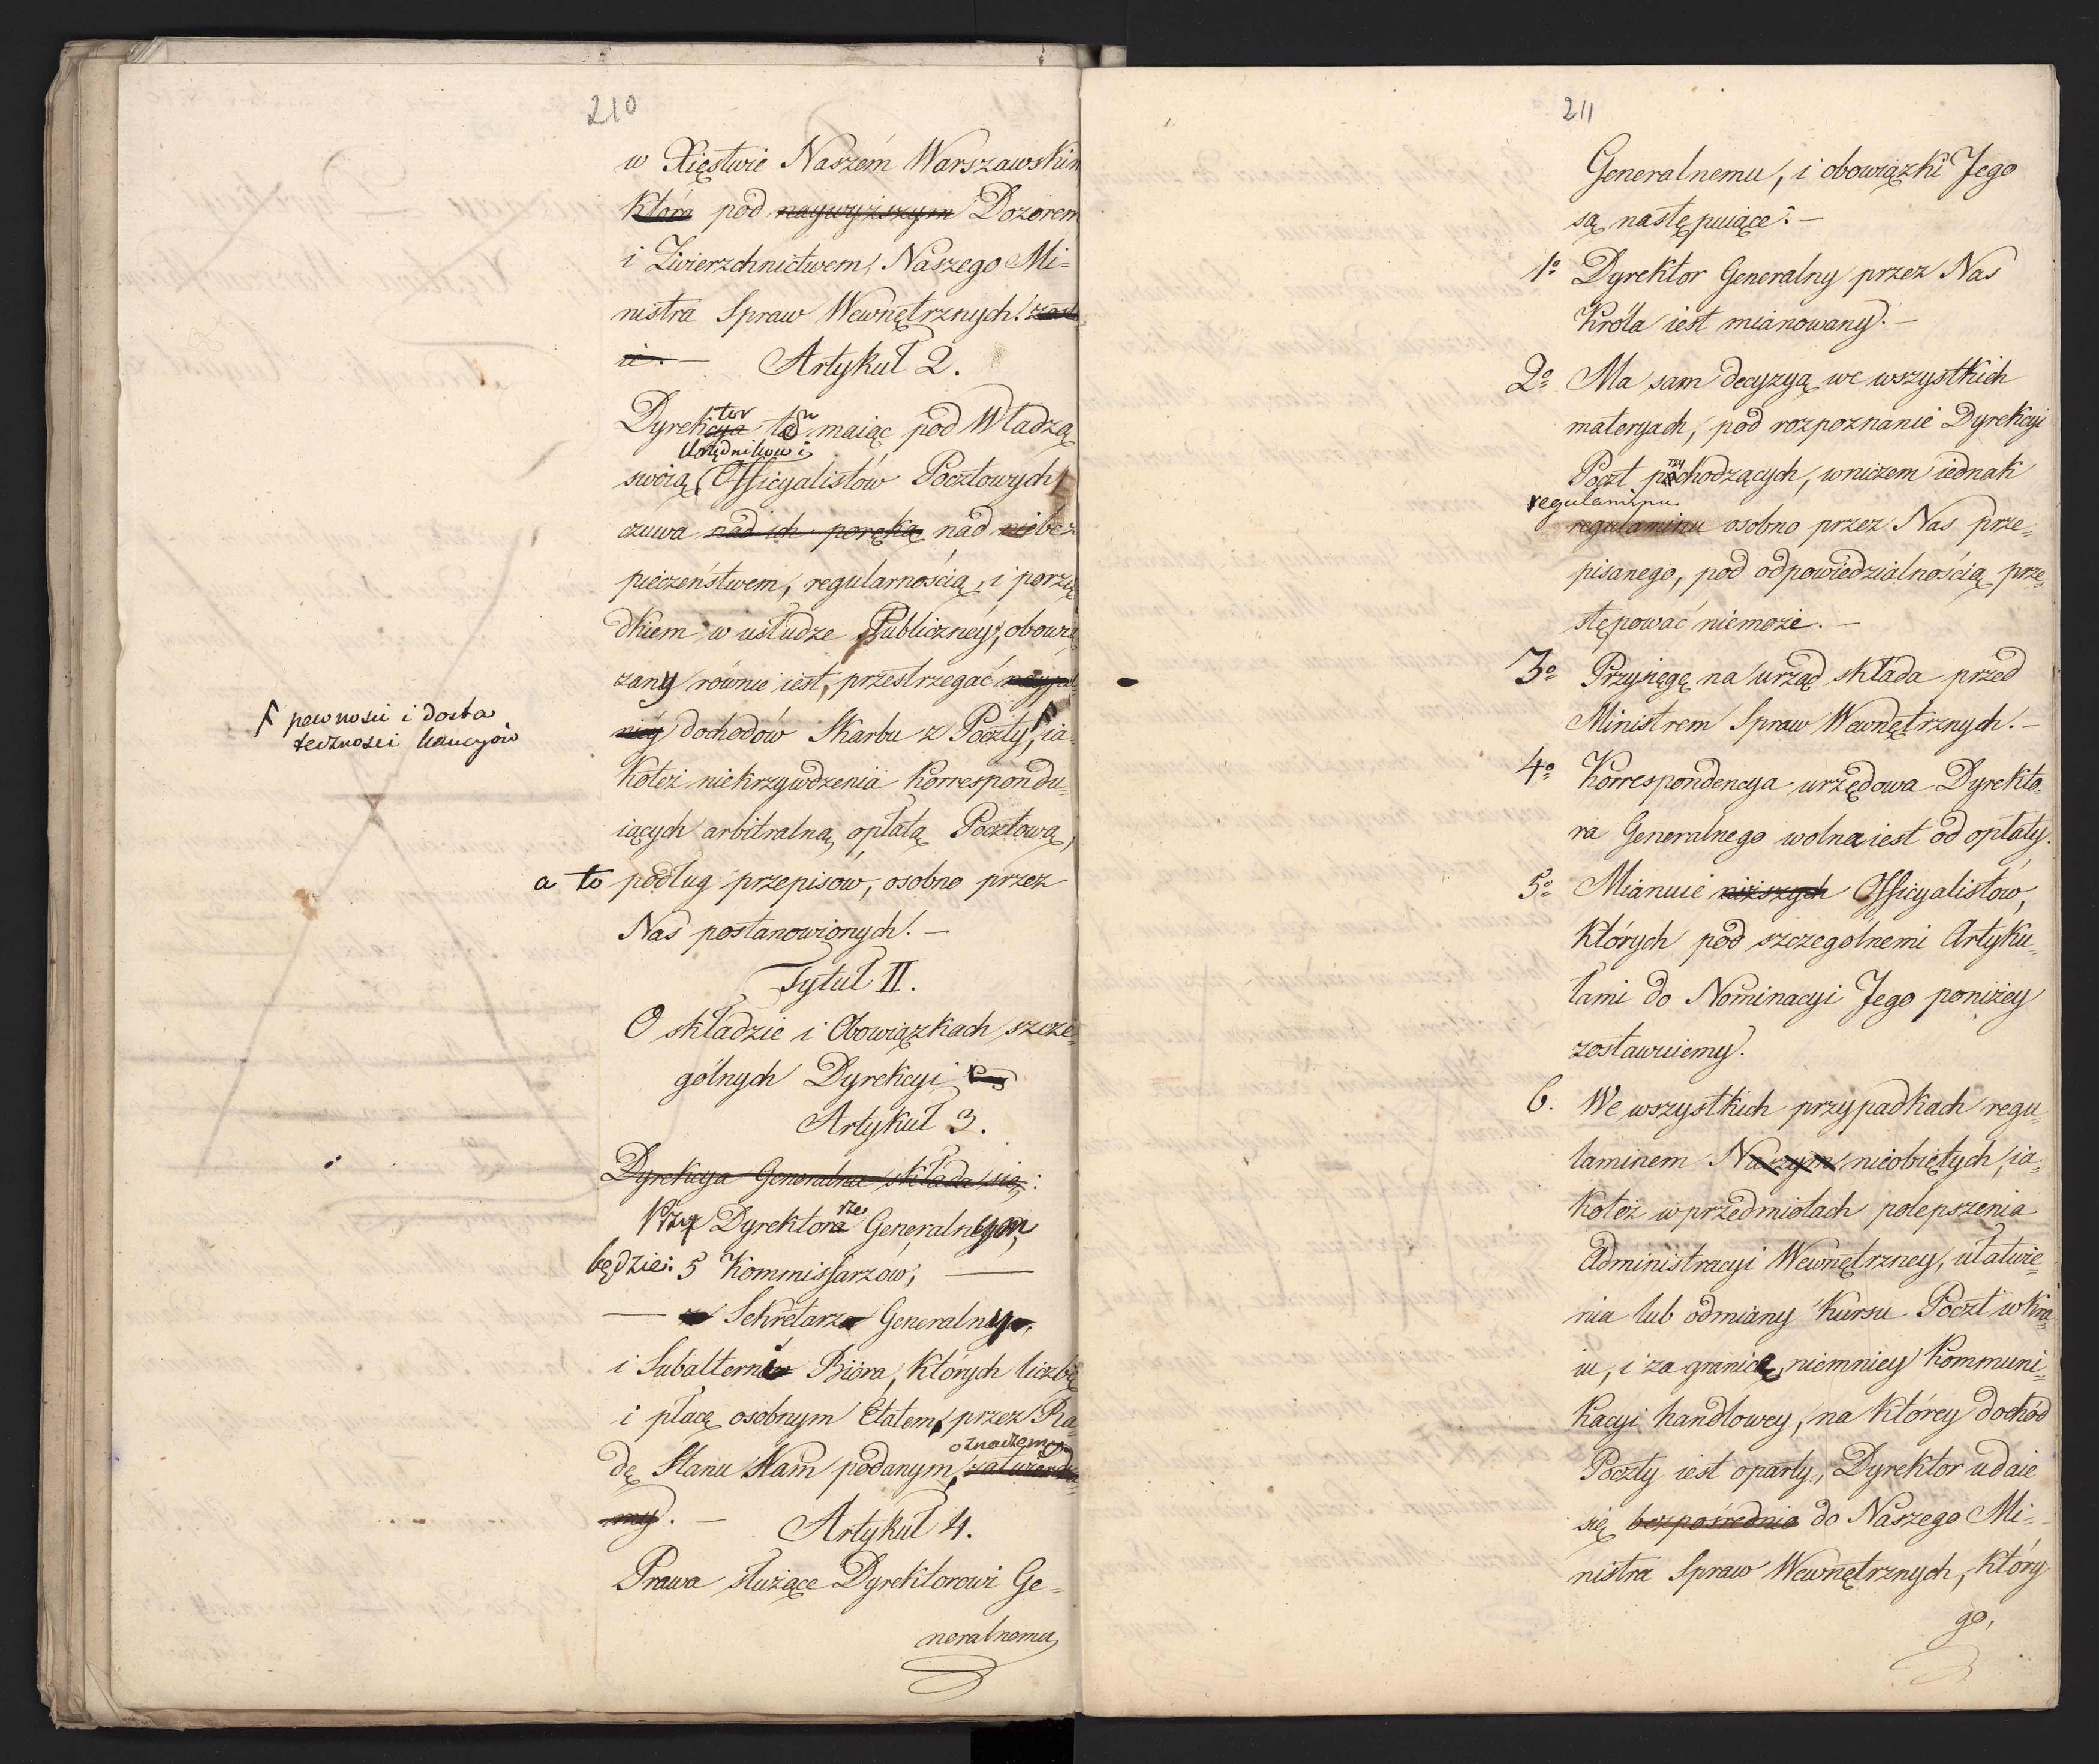 210
w Xięstwie Naszém Warszawskim
która pod naywyższym Dozorem
i Zwierzchnictwem, Naszego Mi=
nistra Spraw Wewnętrznych.
Artykuł 2.
tor n
Dyrekcya ta maiąc pod Władzą
Urzędników i
swoią Officyalistów Pocztowych
czuwa nad ich poręką nad niebez
pieczeństwem, regularnością, i porzą
dkiem w usłudze Publiczney, obowią
zany równie iest, przestrzegać
dochodów Skarbu z Poczty, ia
ꟻ pewnosci i dosta
teczności kaucyów
koteż niekrzywdzenia korrespondu=
iących arbitralną opłatą Pocztową,
a to podług przepisów, osobno przez
Nas postanowionych. —
Tytuł II.
O składzie i Obowiązkach szcze=
gólnych Dyrekcyi
Artykuł 3.
Dyrekcya Generalna składa się:
rze
Przy Dyrektora Generalnym,
będzie: 5 Kommissarzów, —
— Sekretarz Generalny,
i Subalterni Bióra, których liczbę
i płacę osobnym Etatem, przez Ra=
oznaczemy
dę Stanu Nam podanym, zatwierdza=
my. — Artykuł 4.
Prawa służące Dyrektorowi Ge=
neralnemu
211
Generalnemu, i obowiązki Jego
są następuiące: —
1º Dyrektor Generalny przez Nas
Króla iest mianowany. —
2º Ma sam decyzyą we wszystkich
materyach, pod rozpoznanie Dyrekcyi
rzy
Poczt pochodzących, wniczem iednak
regulaminu
regulaminu osobno przez Nas prze=
pisanego, pod odpowiedzialnością prze
stępować niemoże. —
3º Przysięgę na urząd składa przed
Ministrem Spraw Wewnętrznych. —
4º Korrespondencya urzędowa Dyrekto=
ra Generalnego wolna iest od opłaty.
5º Mianuie niższych Officyalistów,
których pod szczególnemi Artyku=
łami do Nominacyi Jego poniżey
zostawuiemy.
6. We wszystkich przypadkach regu=
laminem Naszym nieobiętych, ia=
koteż w przedmiotach polepszenia
Administracyi Wewnętrzney, ułatwie=
nia lub odmiany Kursu Poczt w Kra=
iu, i za granicę, niemniey Kommuni=
kacyi handlowey, na którey dochód
Poczty iest oparty, Dyrektor udaie
się bezpośrednio do Naszego Mi=
nistra Spraw Wewnętrznych, który
go,